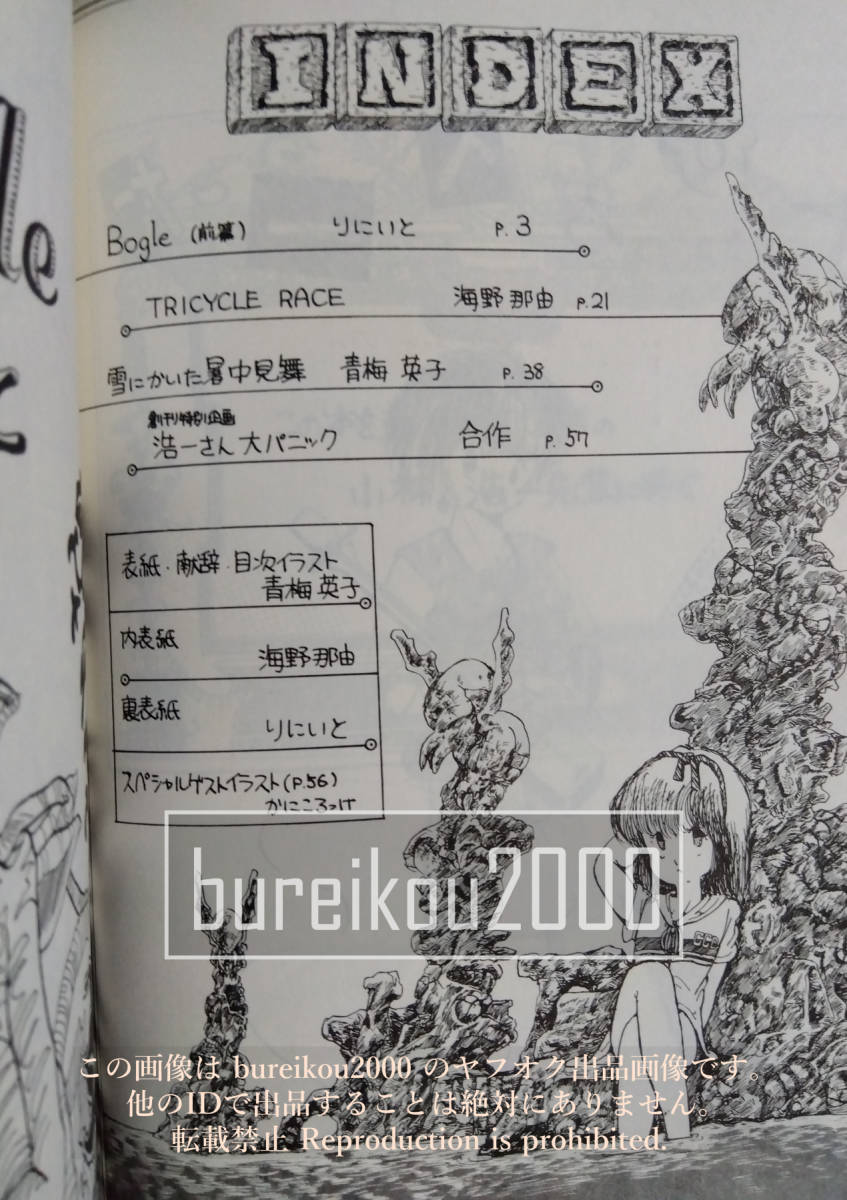 INDEX
Bogle (前篇) りにいと P.3
TRICYCLE RACE 海野那由 P.21
雪にかいた暑中見舞 青梅英子 P.38
創刊特別企画
浩一さん大パニック 合作 P.57
表紙・献辞・目次イラスト
青梅英子
内表紙
海野那由
裏表紙
りにいと
スペシャルゲストイラスト(P.56)
かにころっけ
bureikou2000
この画像は bureikou2000 のヤフオク出品画像です。
他のIDで出品することは絶対にありません。
転載禁止 Reproduction is prohibited.